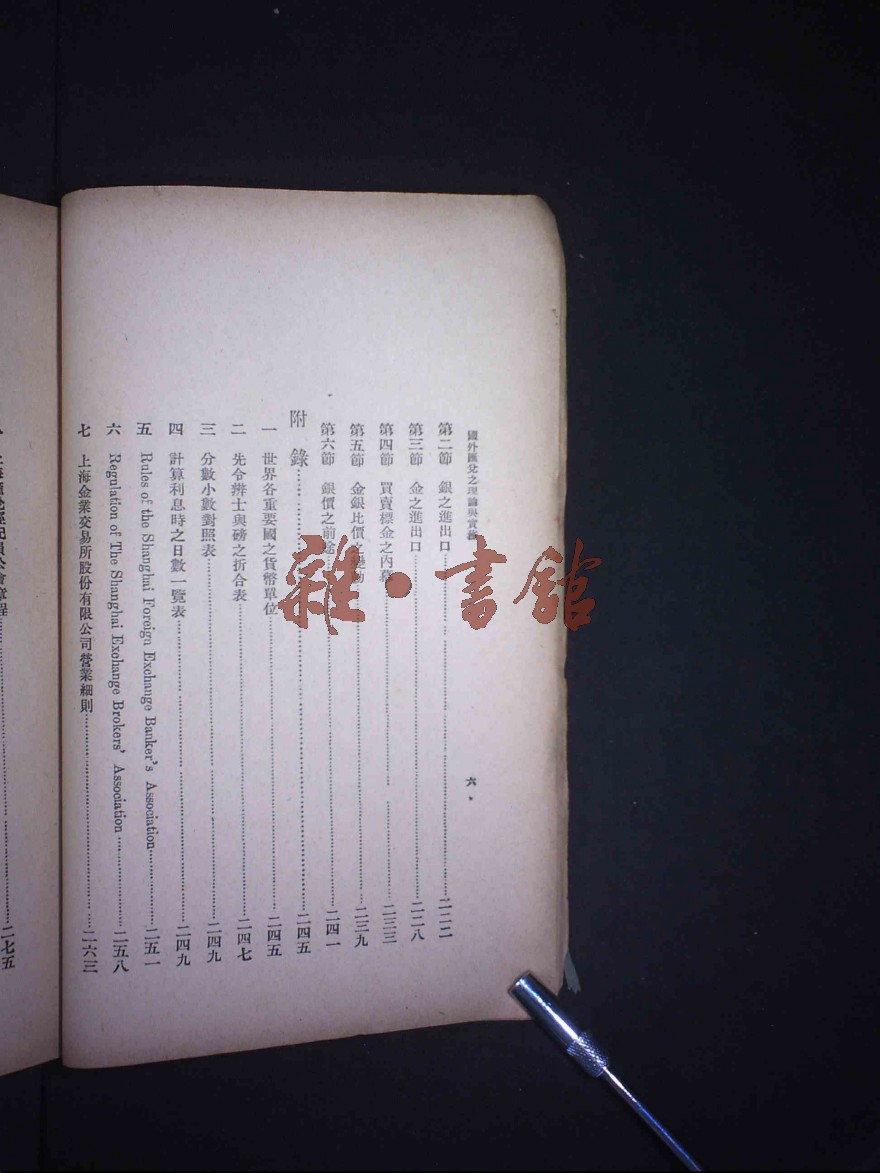 國外匯兌之理論與實務
六
第二節 銀之進出口……二二二
第三節 金之進出口……二二八
第四節 買賣標金之內幕……二三三
第五節 金銀比價之變動……二三九
第六節 銀價之前途……二四一
附錄……二四五
一 世界各重要國之貨幣單位……二四五
二 先令辨士與磅之折合表……二四七
三 分數小數對照表……二四九
四 計算利息時之日數一覽表……二四九
五 Rules of the Shanghai Foreign Exchange Banker's Association……二五一
六 Regulation of The Shanghai Exchange Brokers' Association……二五八
七 上海金業交易所股份有限公司營業細則……二六三
二七五
雜·書館